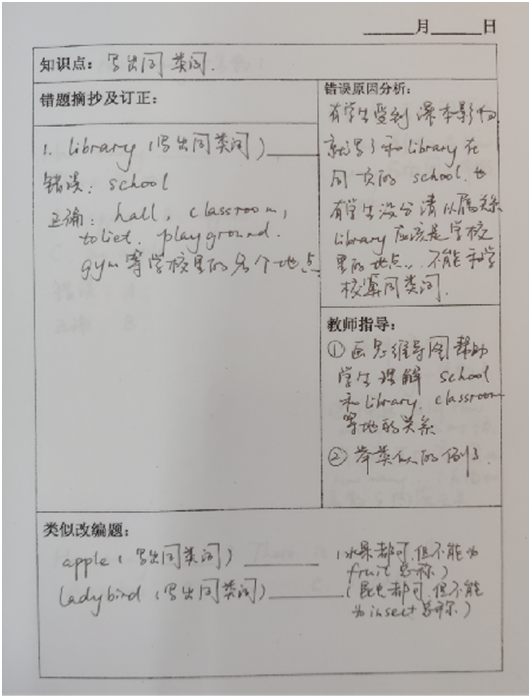 ______月______日
知识点：写出同类词.
错题摘抄及订正：
1. library (写出同类词)______
错误：school
正确：hall, classroom,
toliet. playground.
gym 等学校里的各个地点
错误原因分析：
有学生受到课本影响
就写了和library在
同一页的 school. 也
有学生没分清从属关系
library 应该是学校
里的地点, 不能和学
校算同类词.
教师指导：
① 画思维导图帮助
学生理解 school
和library. classroom
等地的关系
② 举类似的例子.
类似改编题：
apple (写出同类词) ______ (水果都可,但不能为
fruit 总称)
ladybird (写出同类词) ______ (昆虫都可,但不能
为insect总称)